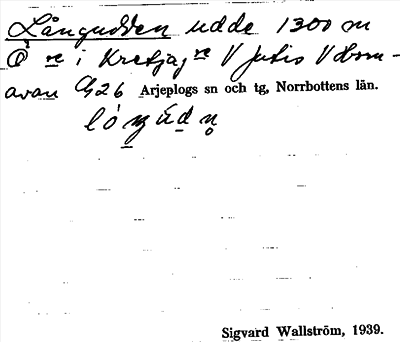 Långudden udde 1300 m
O re i Kretjajre V Jutis V Horn-
avan G26 Arjeplogs sn och tg, Norrbottens län.
lóŋúdn̥
Sigvard Wallström, 1939.